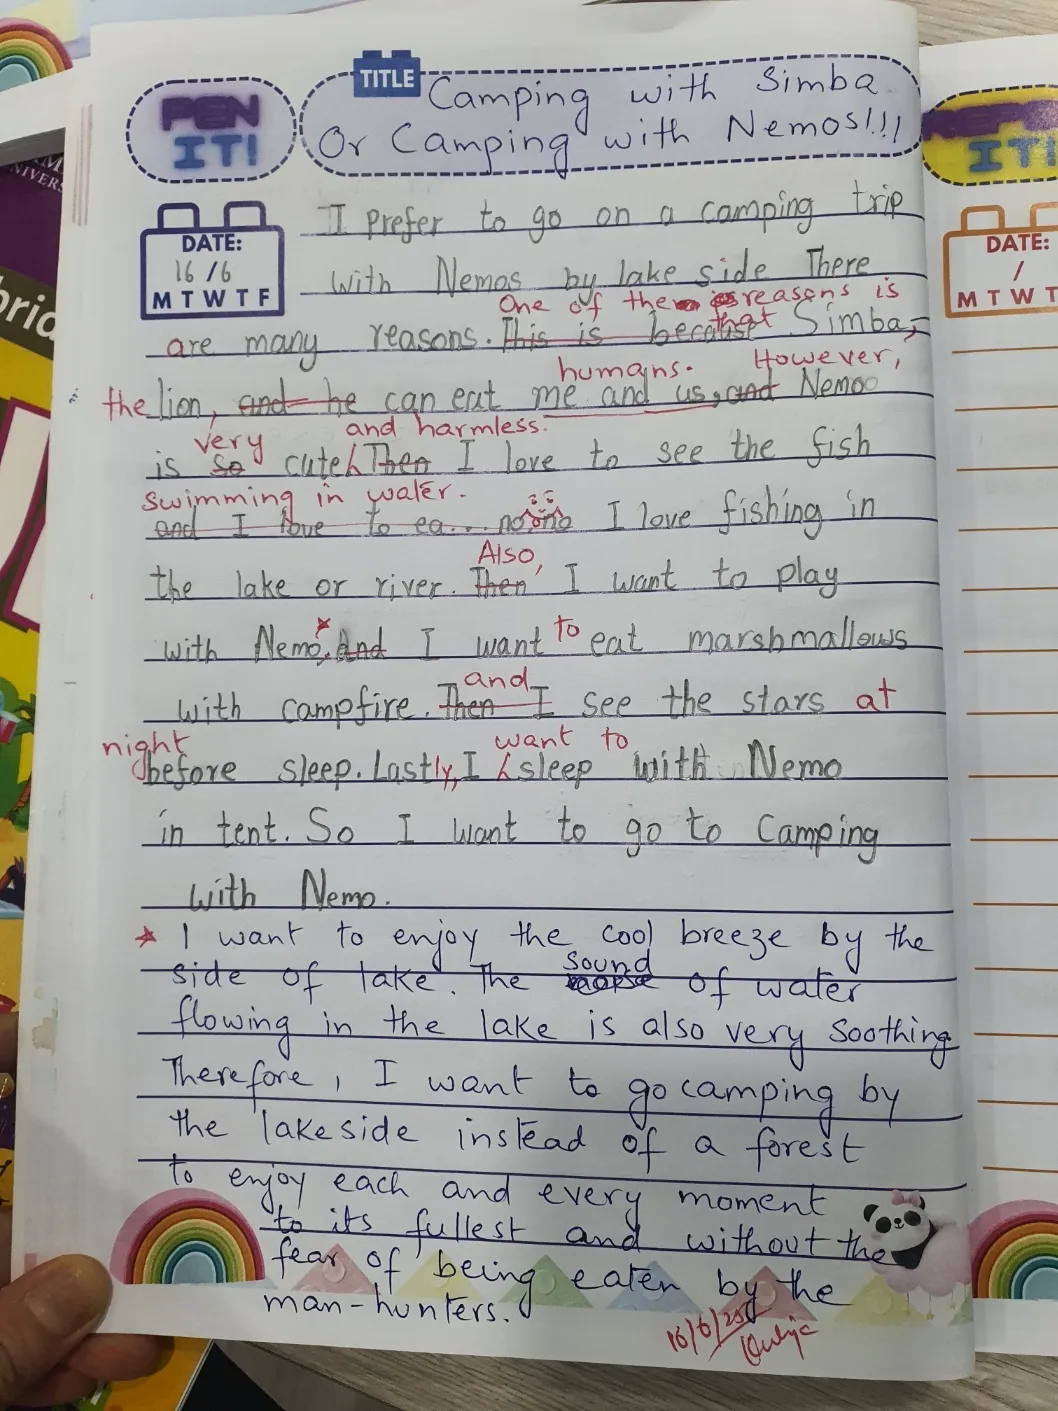 PEN IT!
TITLE Camping with Simba
Or Camping with Nemos!!!
DATE:
16/6
M T W T F
I Prefer to go on a camping trip
with Nemos by lake side There
One of the reasons is
that
are many reasons. This is because Simba,
humans. However,
the lion, and he can eat me and us, and Nemo
very and harmless.
is so cute Then I love to see the fish
swimming in water.
and I love to ea... no no I love fishing in
Also,
the lake or river. Then I want to play
with Nemo. And I want to eat marshmallows
and
with campfire. Then I see the stars at
night want to
before sleep. Lastly, I sleep with Nemo
in tent. So I want to go to Camping
with Nemo.
I want to enjoy the cool breeze by the
sound
side of lake. The of water
flowing in the lake is also very soothing
Therefore, I want to go camping by
the lakeside instead of a forest
to enjoy each and every moment
to its fullest and without the
fear of being eaten by the
man-hunters.
16/6/25
IT!
DATE:
/
M T W T
brid
UNIVERS